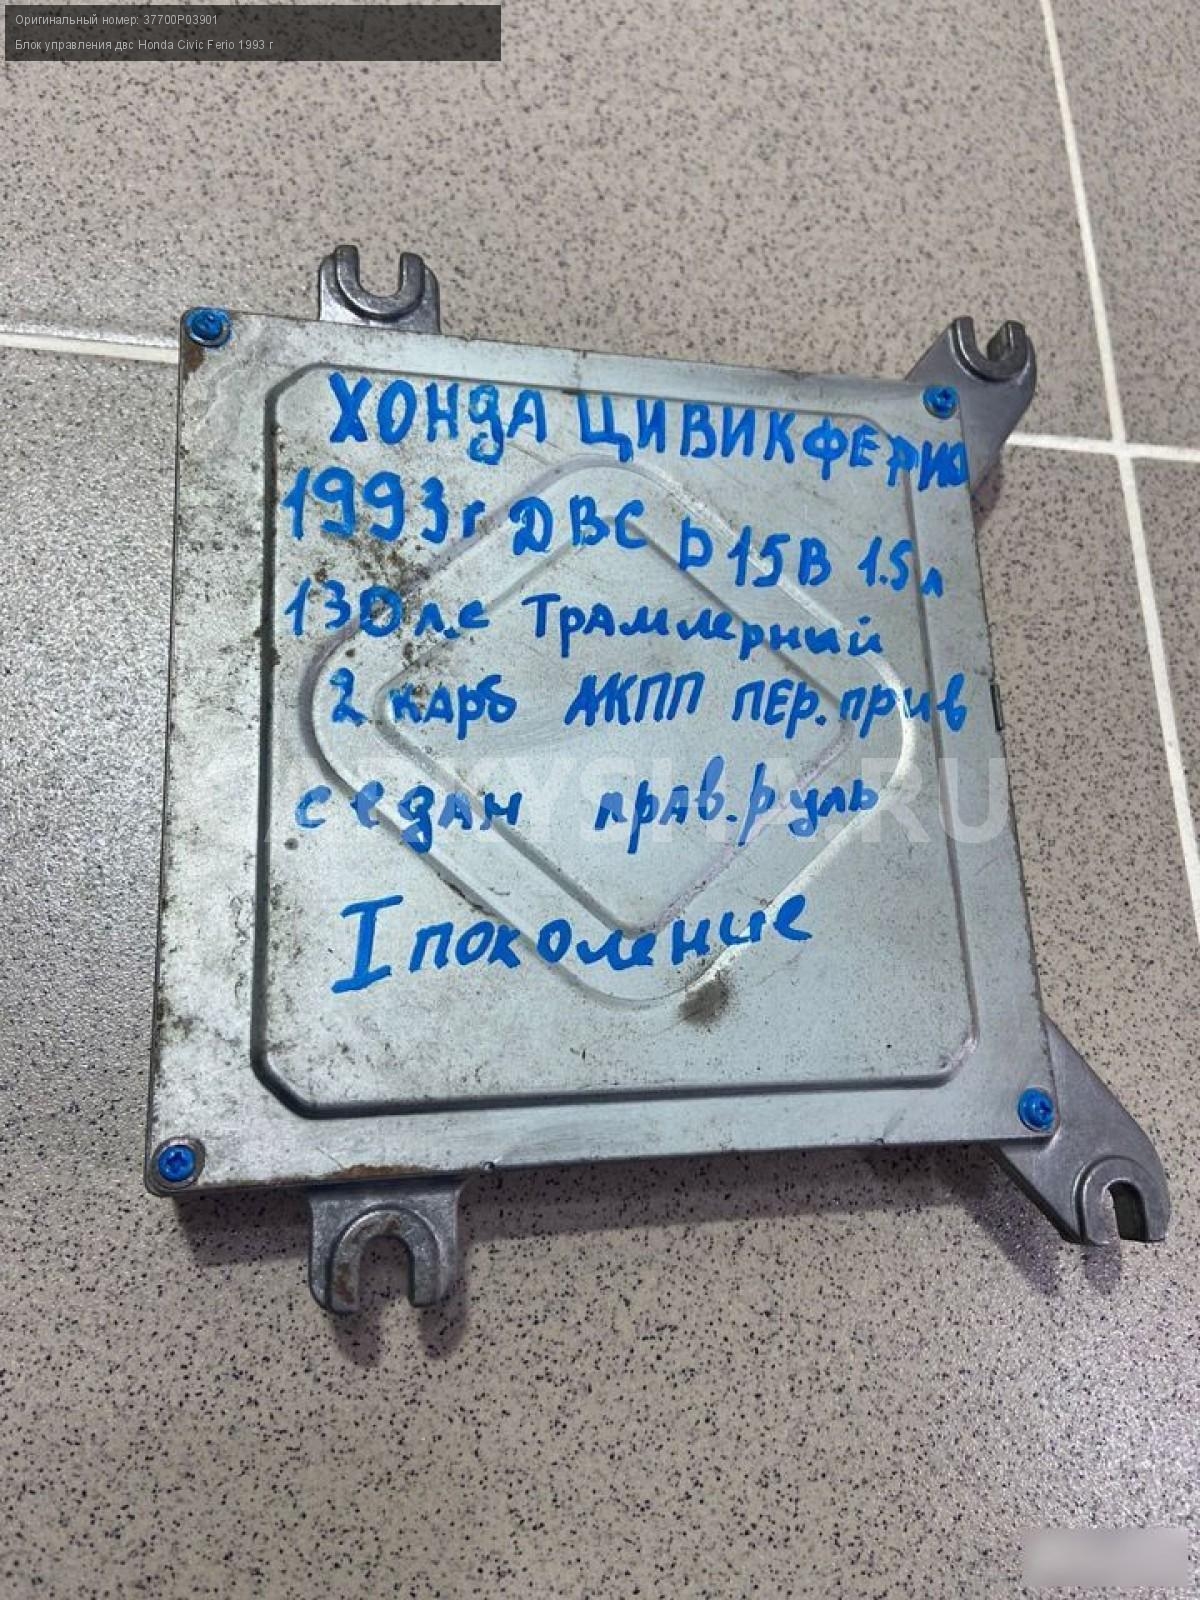 Оригинальный номер: 37700P03901
Блок управления двс Honda Civic Ferio 1993 г
ХОНДА ЦИВИК ФЕРИО
1993г ДВС D15B 1.5л
130 л.с Трамлерный
2 карб АКПП ПЕР. прив
седан прав. руль
I поколение
CARKYSHA.RU